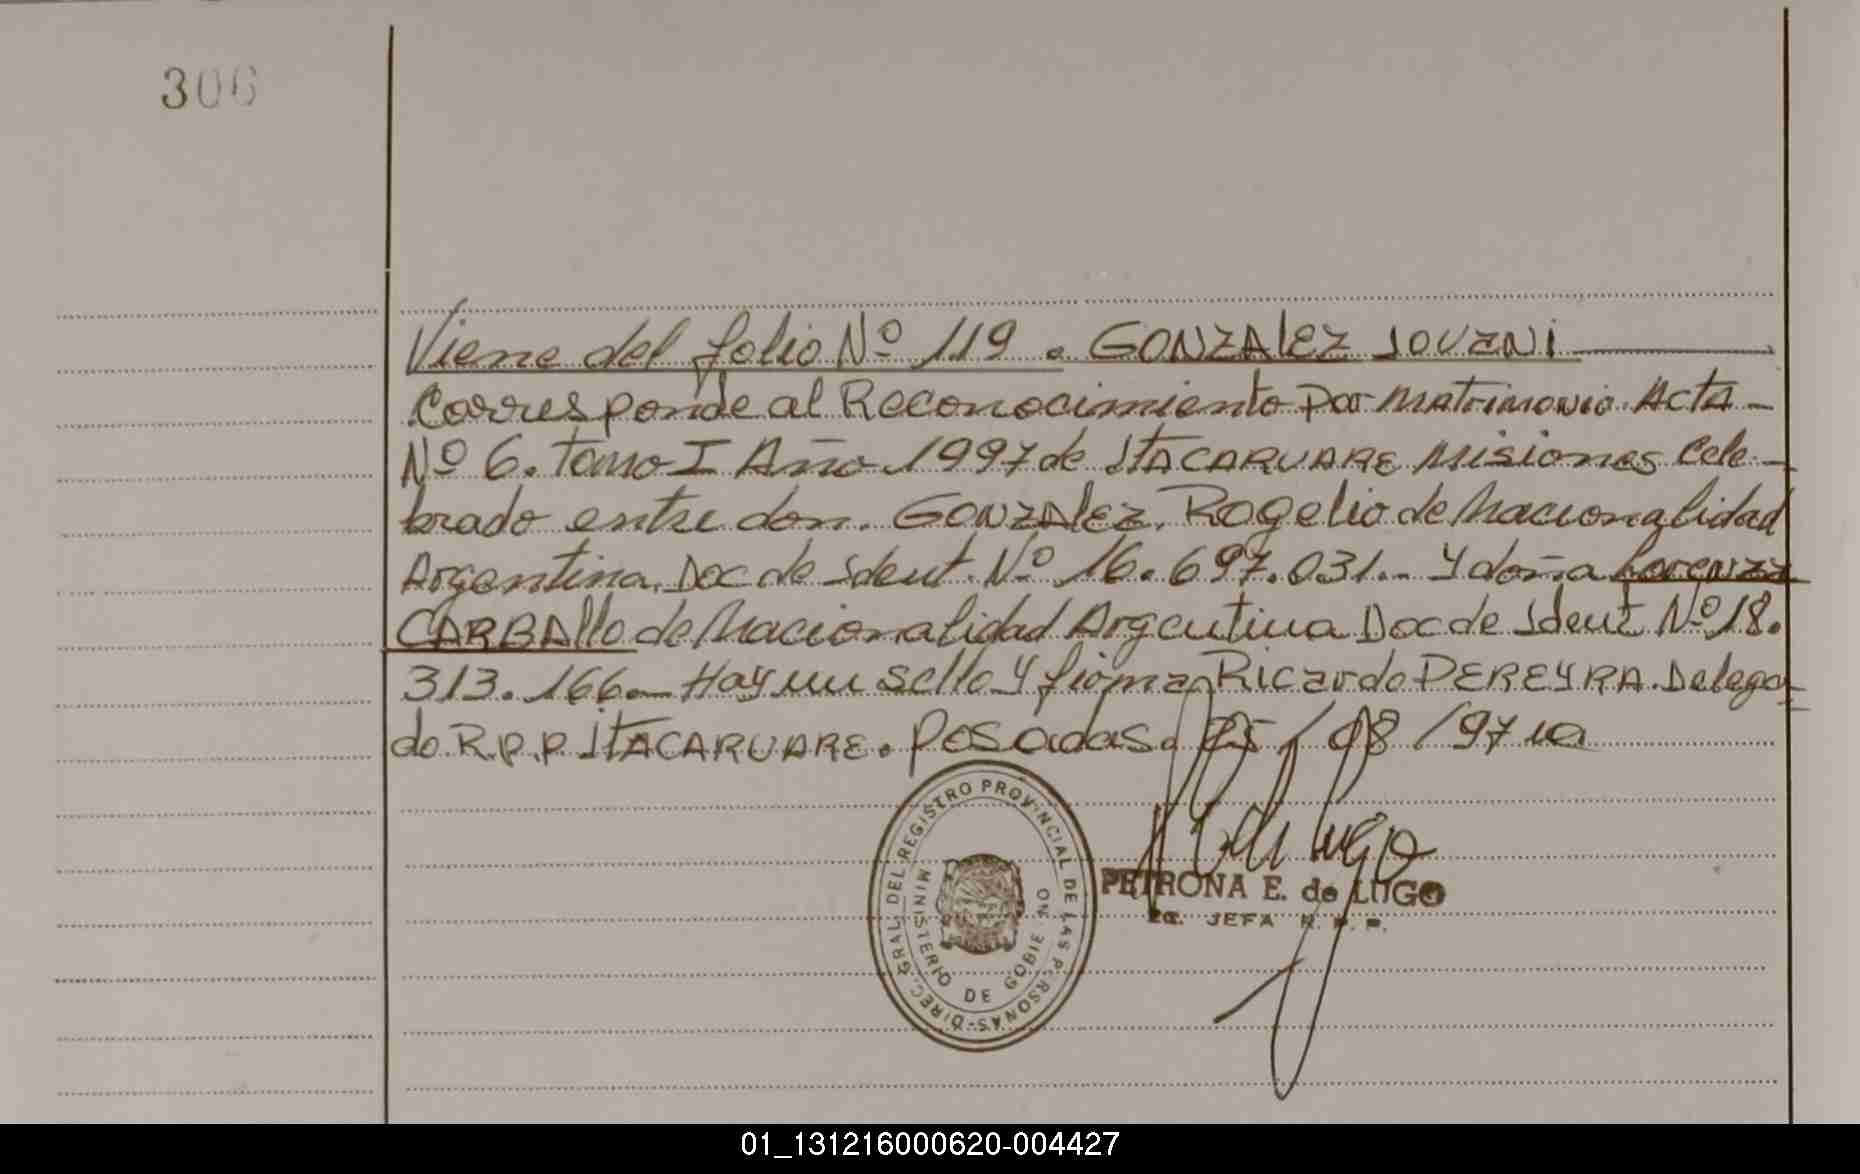 306
Viene del folio Nº 119. GONZALEZ JOVANI
Corresponde al Reconocimiento por Matrimonio. Acta
Nº 6. Tomo I Año 1997 de ITACARUARE Misiones Cele-
brado entre don. GONZALEZ, Rogelio de Nacionalidad
Argentina. Doc de Ident. Nº 16.697.031.- Y doña Lorenza
CARBALLO de Nacionalidad Argentina Doc de Ident Nº 18.
313.166.- Hay un sello y firma Ricardo PEREYRA. Delega-
do R.P.P ITACARUARE. Posadas. 25/08/97
DIREC. GRAL. DEL REGISTRO PROVINCIAL DE LAS PERSONAS-
MINISTERIO DE GOBIERNO
PETRONA E. de LUGO
JEFA R. P. P.
01_131216000620-004427